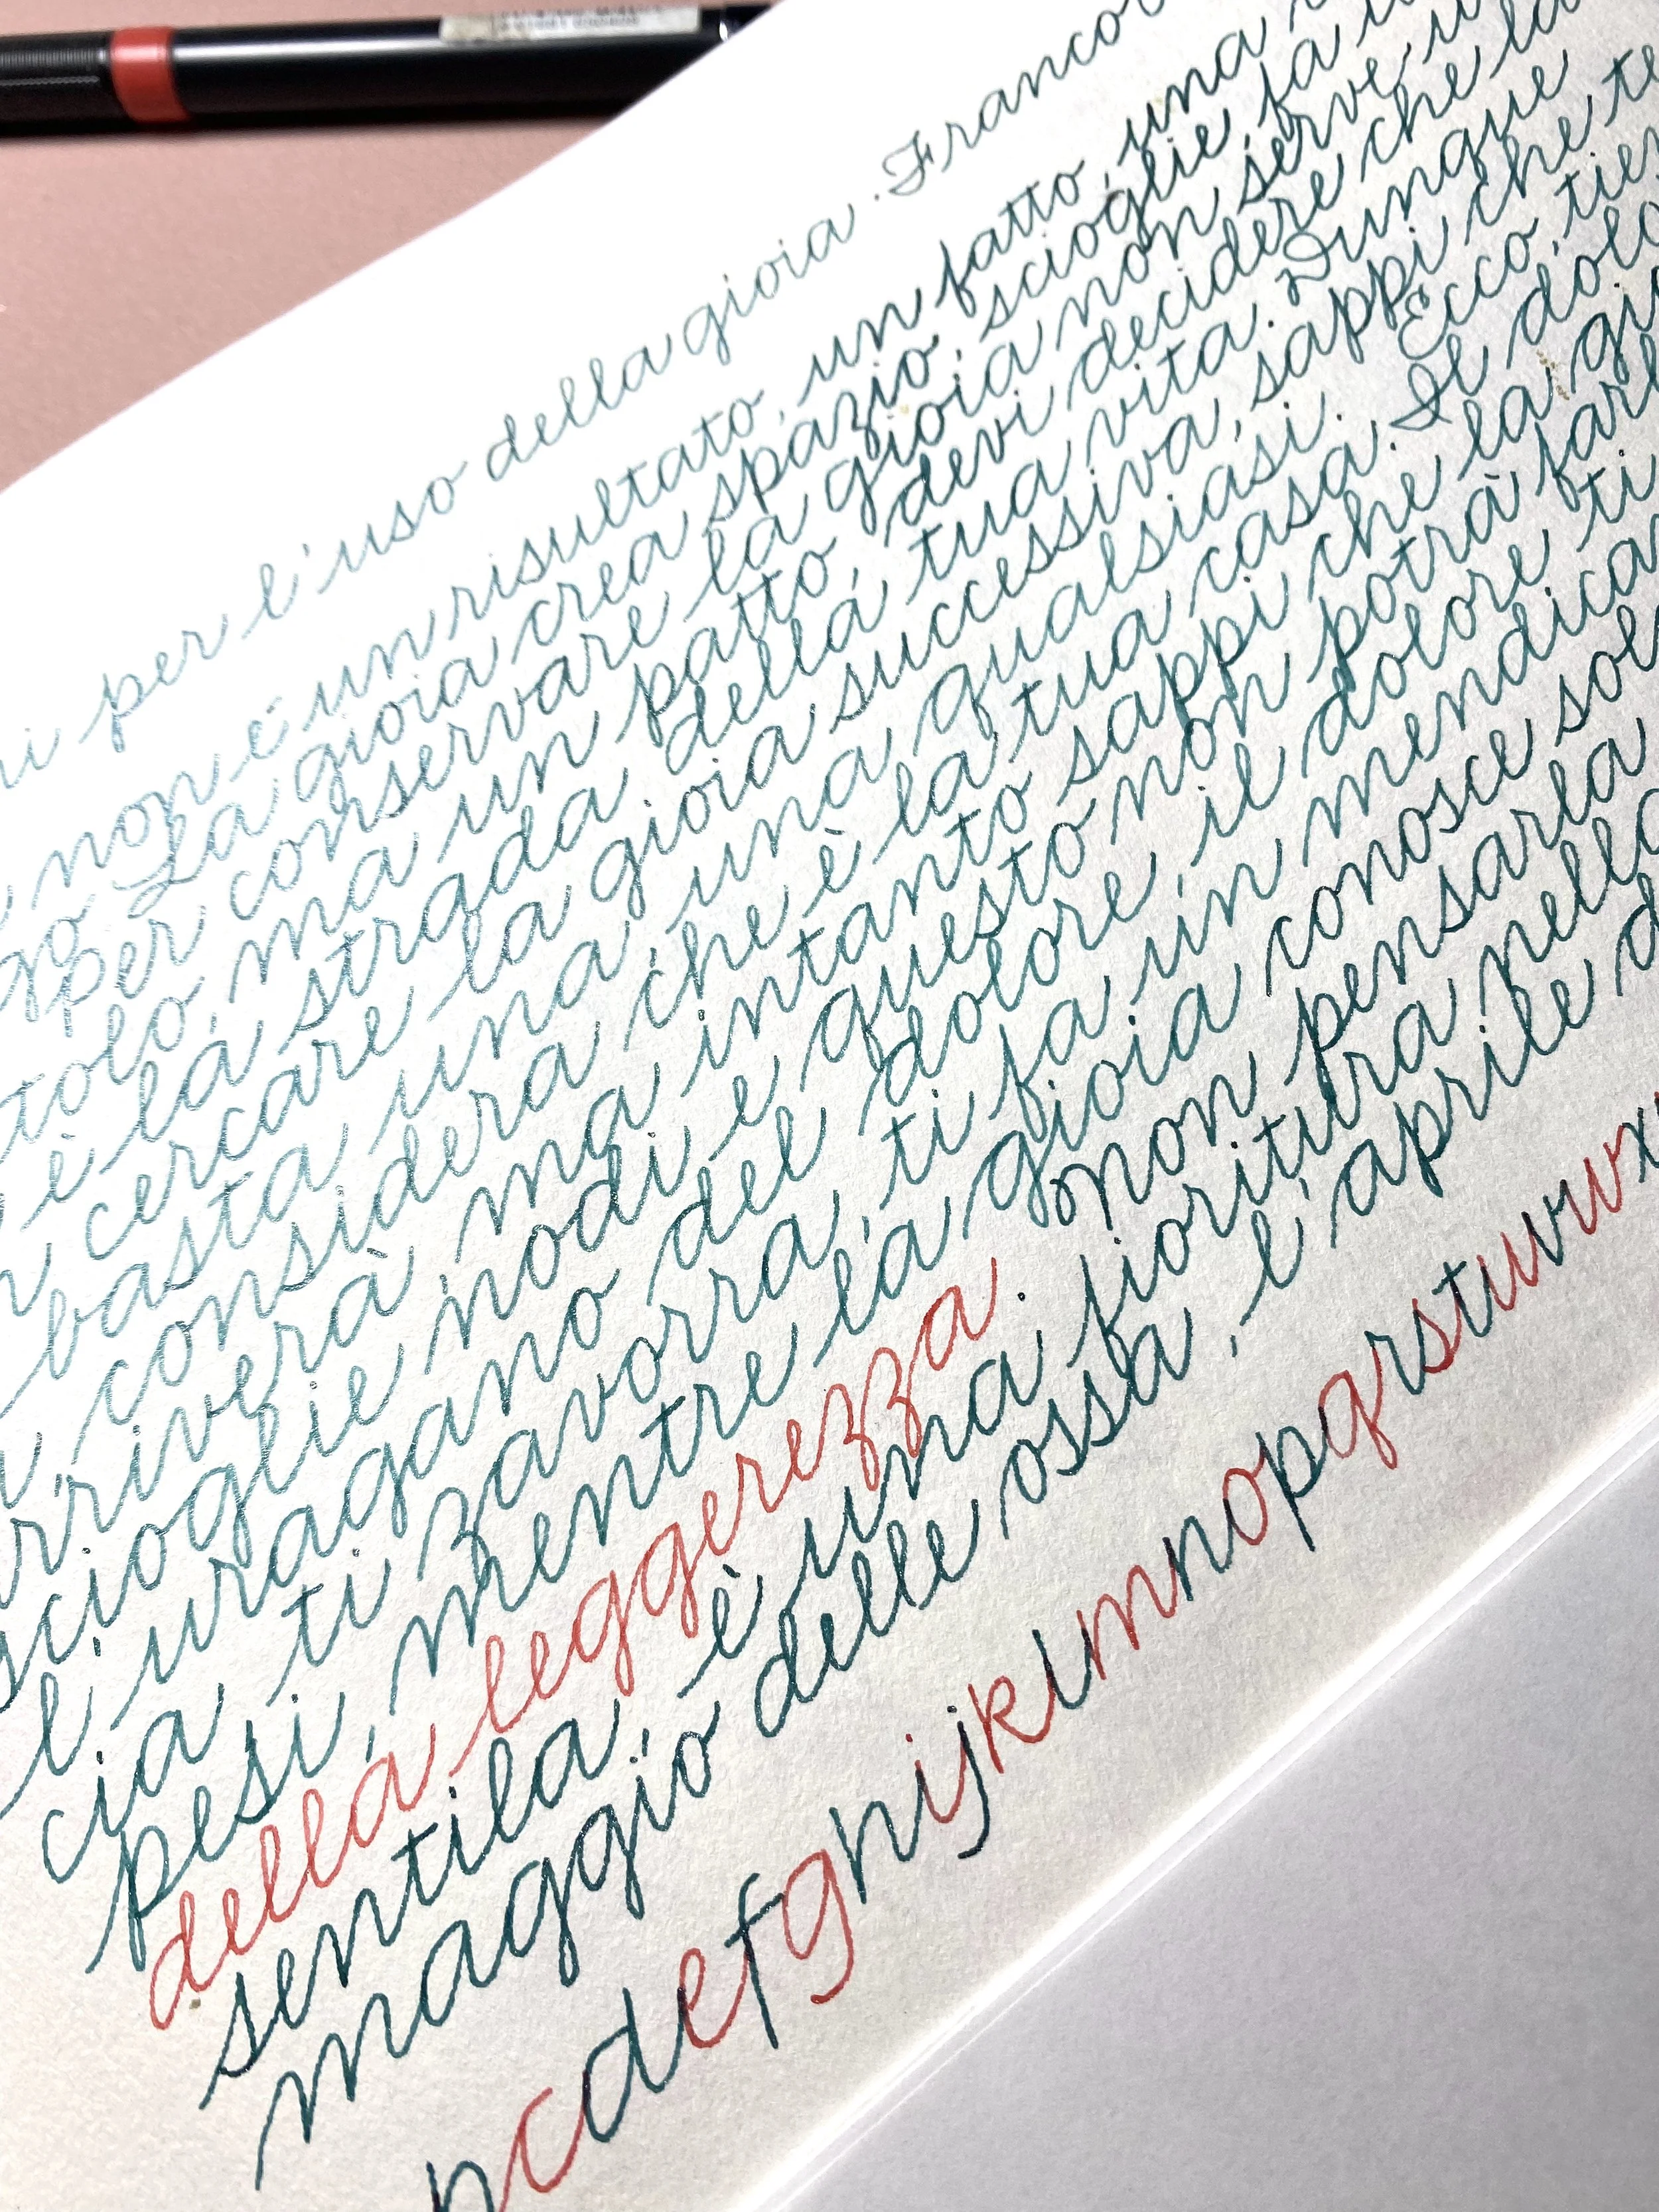 per l'uso della gioia. Franco
non è un risultato, un fatto, una
La gioia crea spazio, scioglie, fa
Per conservare la gioia non serve
ma un patto, devi decidere che la
è la strada della tua vita. Dunque
cercare la gioia successiva, sappi che te
basta una, una qualsiasi. Ecco, tien
considera che è la tua casa. Il dolo
ma intanto sappi che la
scioglie nodi e questo non potrà far
l'uragano del dolore, il dolore ti
cia ti zavorra, ti fa un mendica
pesi, mentre la gioia conosce sol
della leggerezza. non pensarla
sentila è una fioritura nella
maggio delle ossa, l'aprile d
cdefghijklmnopqrstuvwx